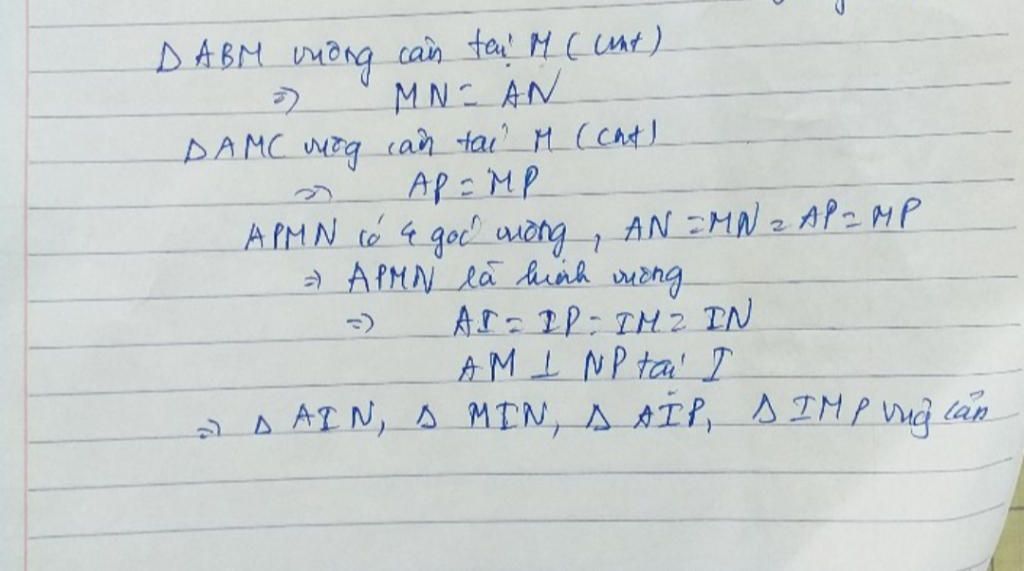 Δ ABM vuông cân tại M (cmt)
=> MN = AN
Δ AMC vuôg cân tại M (cmt)
=> AP = MP
APMN có 4 góc vuông, AN = MN = AP = MP
=> APMN là hình vuông
=> AI = IP = IM = IN
AM ⊥ NP tại I
=> Δ AIN, Δ MIN, Δ AIP, Δ IMP vug cân